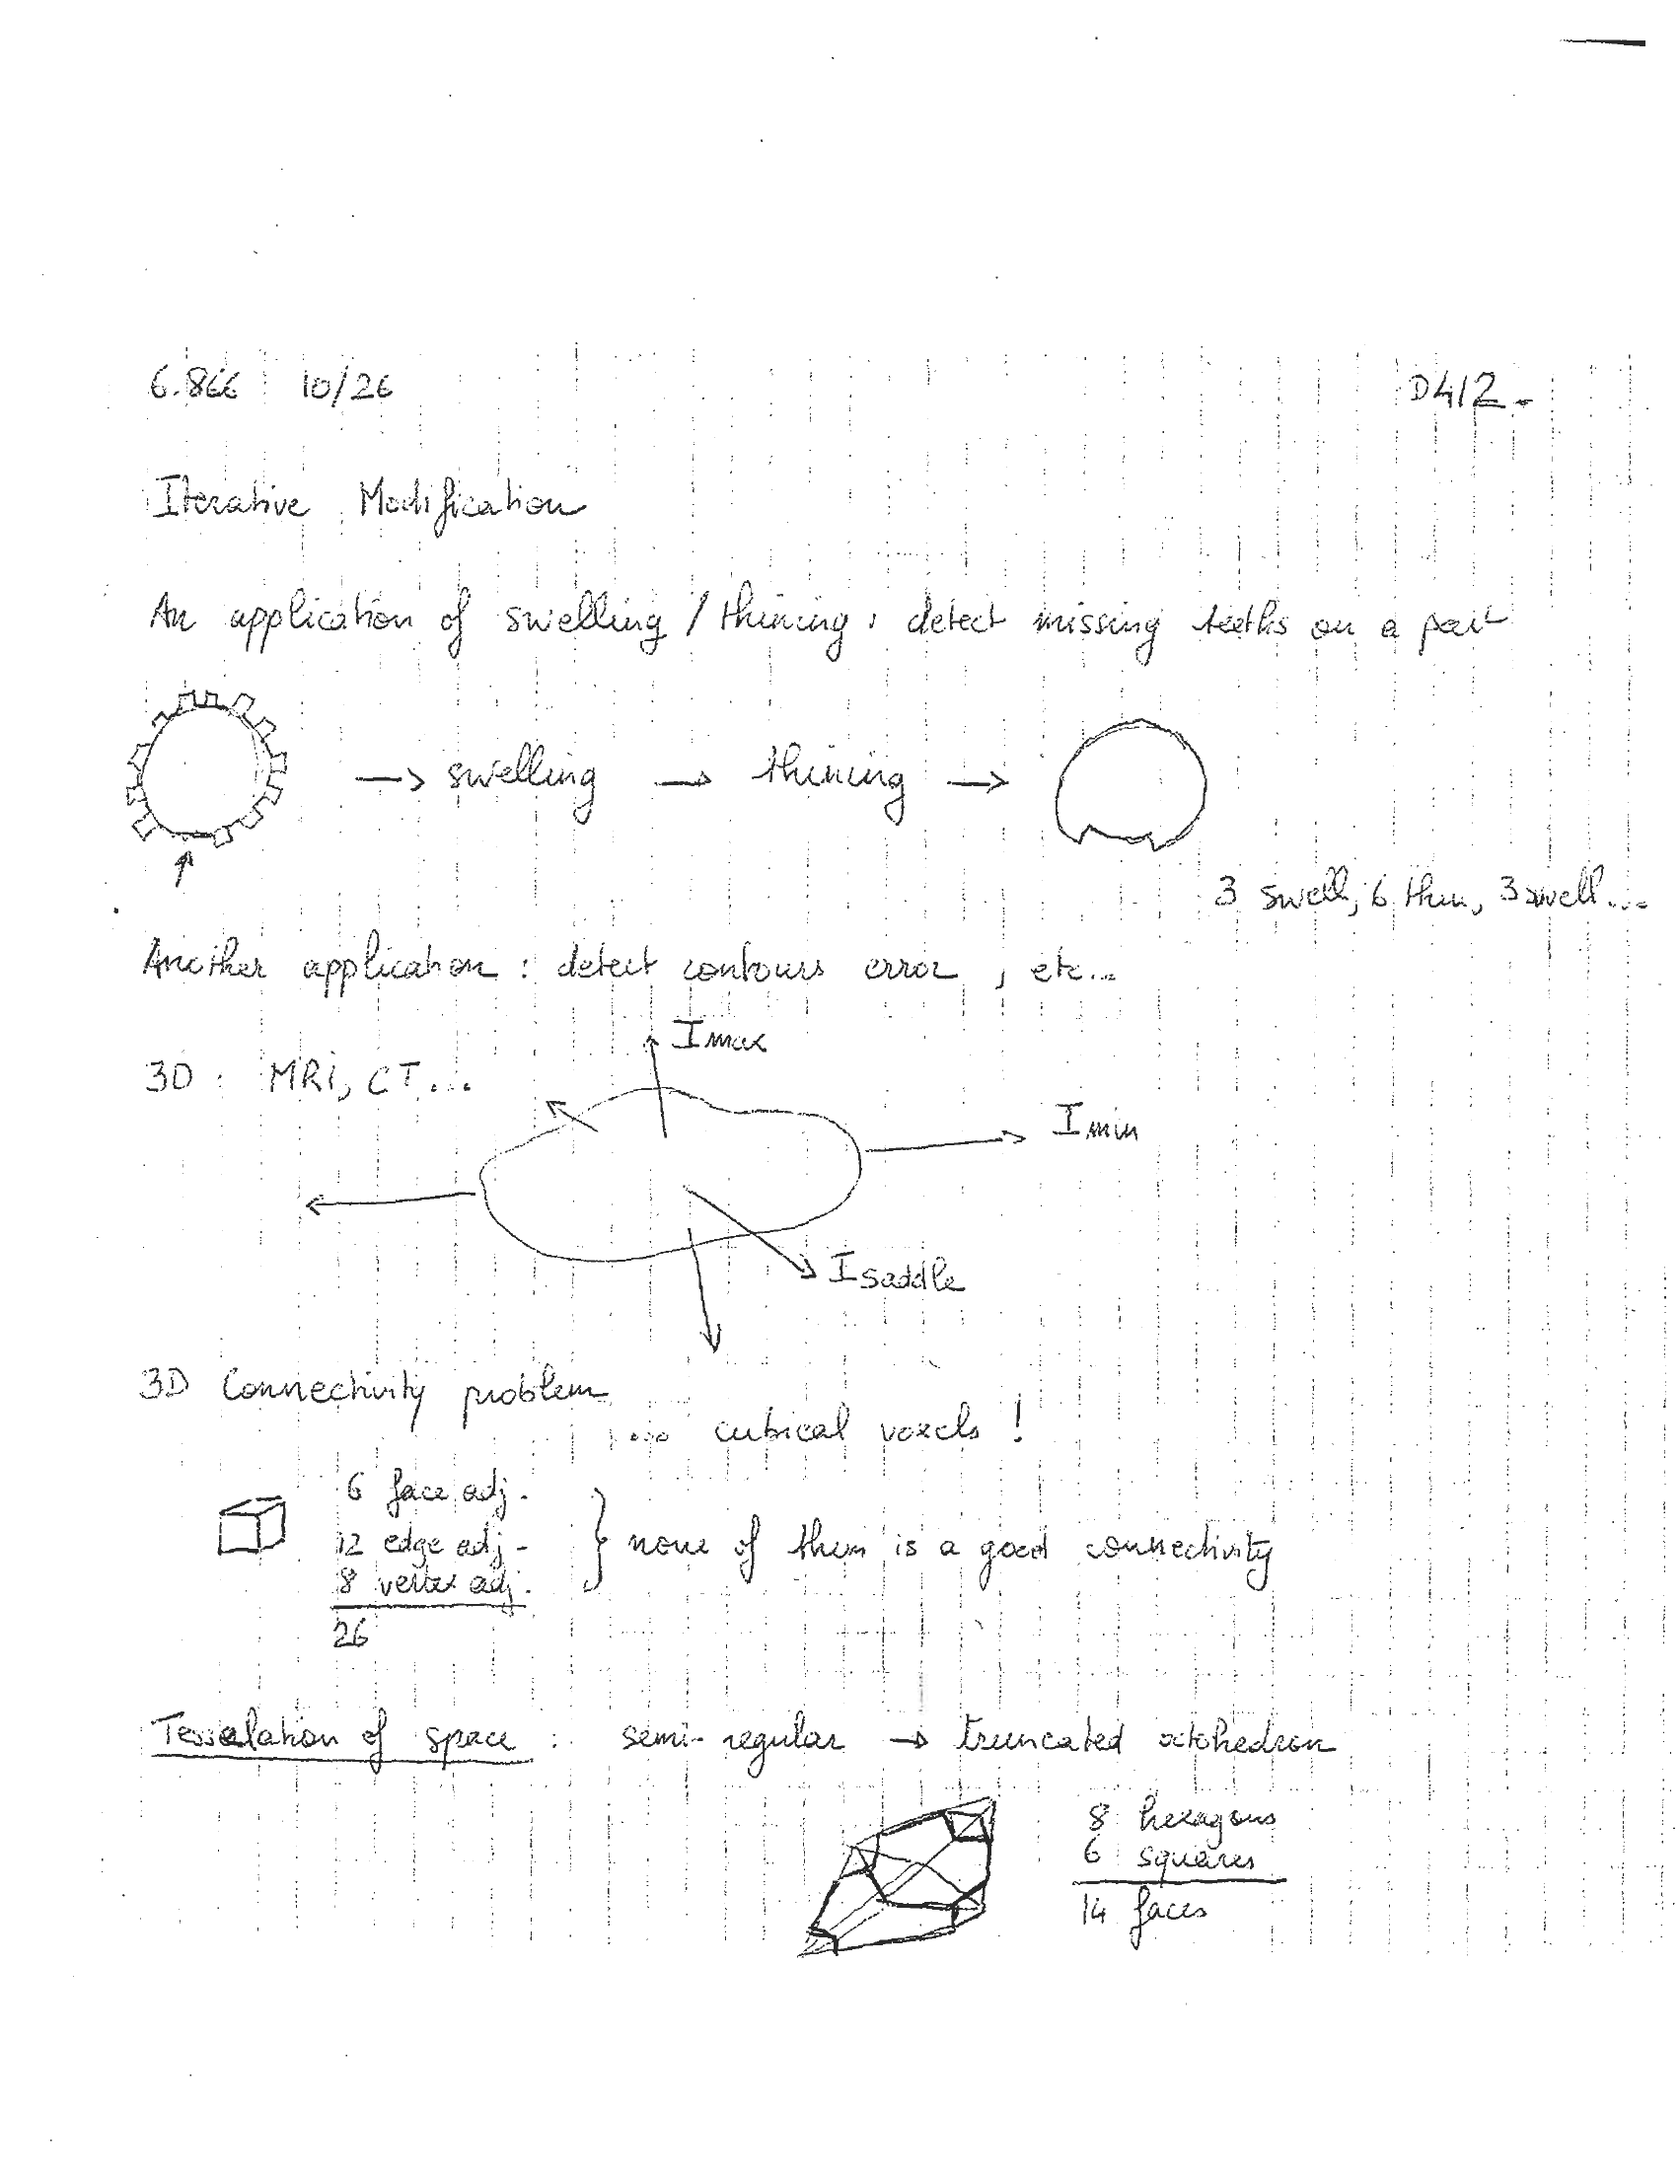 6.866 10/26 D4/2-
Iterative Modification
An application of swelling / thining : detect missing teeths on a part
→ swelling → thining →
3 swell, 6 thin, 3 swell...
Another application : detect contours error , etc...
Imax
3D : MRi, CT...
Imin
Isaddle
3D Connectivity problem
... cubical voxels !
6 face adj.
12 edge adj- } none of them is a good connectivity
8 vertex adj.
26
Tessalation of space : semi-regular → truncated octohedron
8 hexagons
6 squares
14 faces